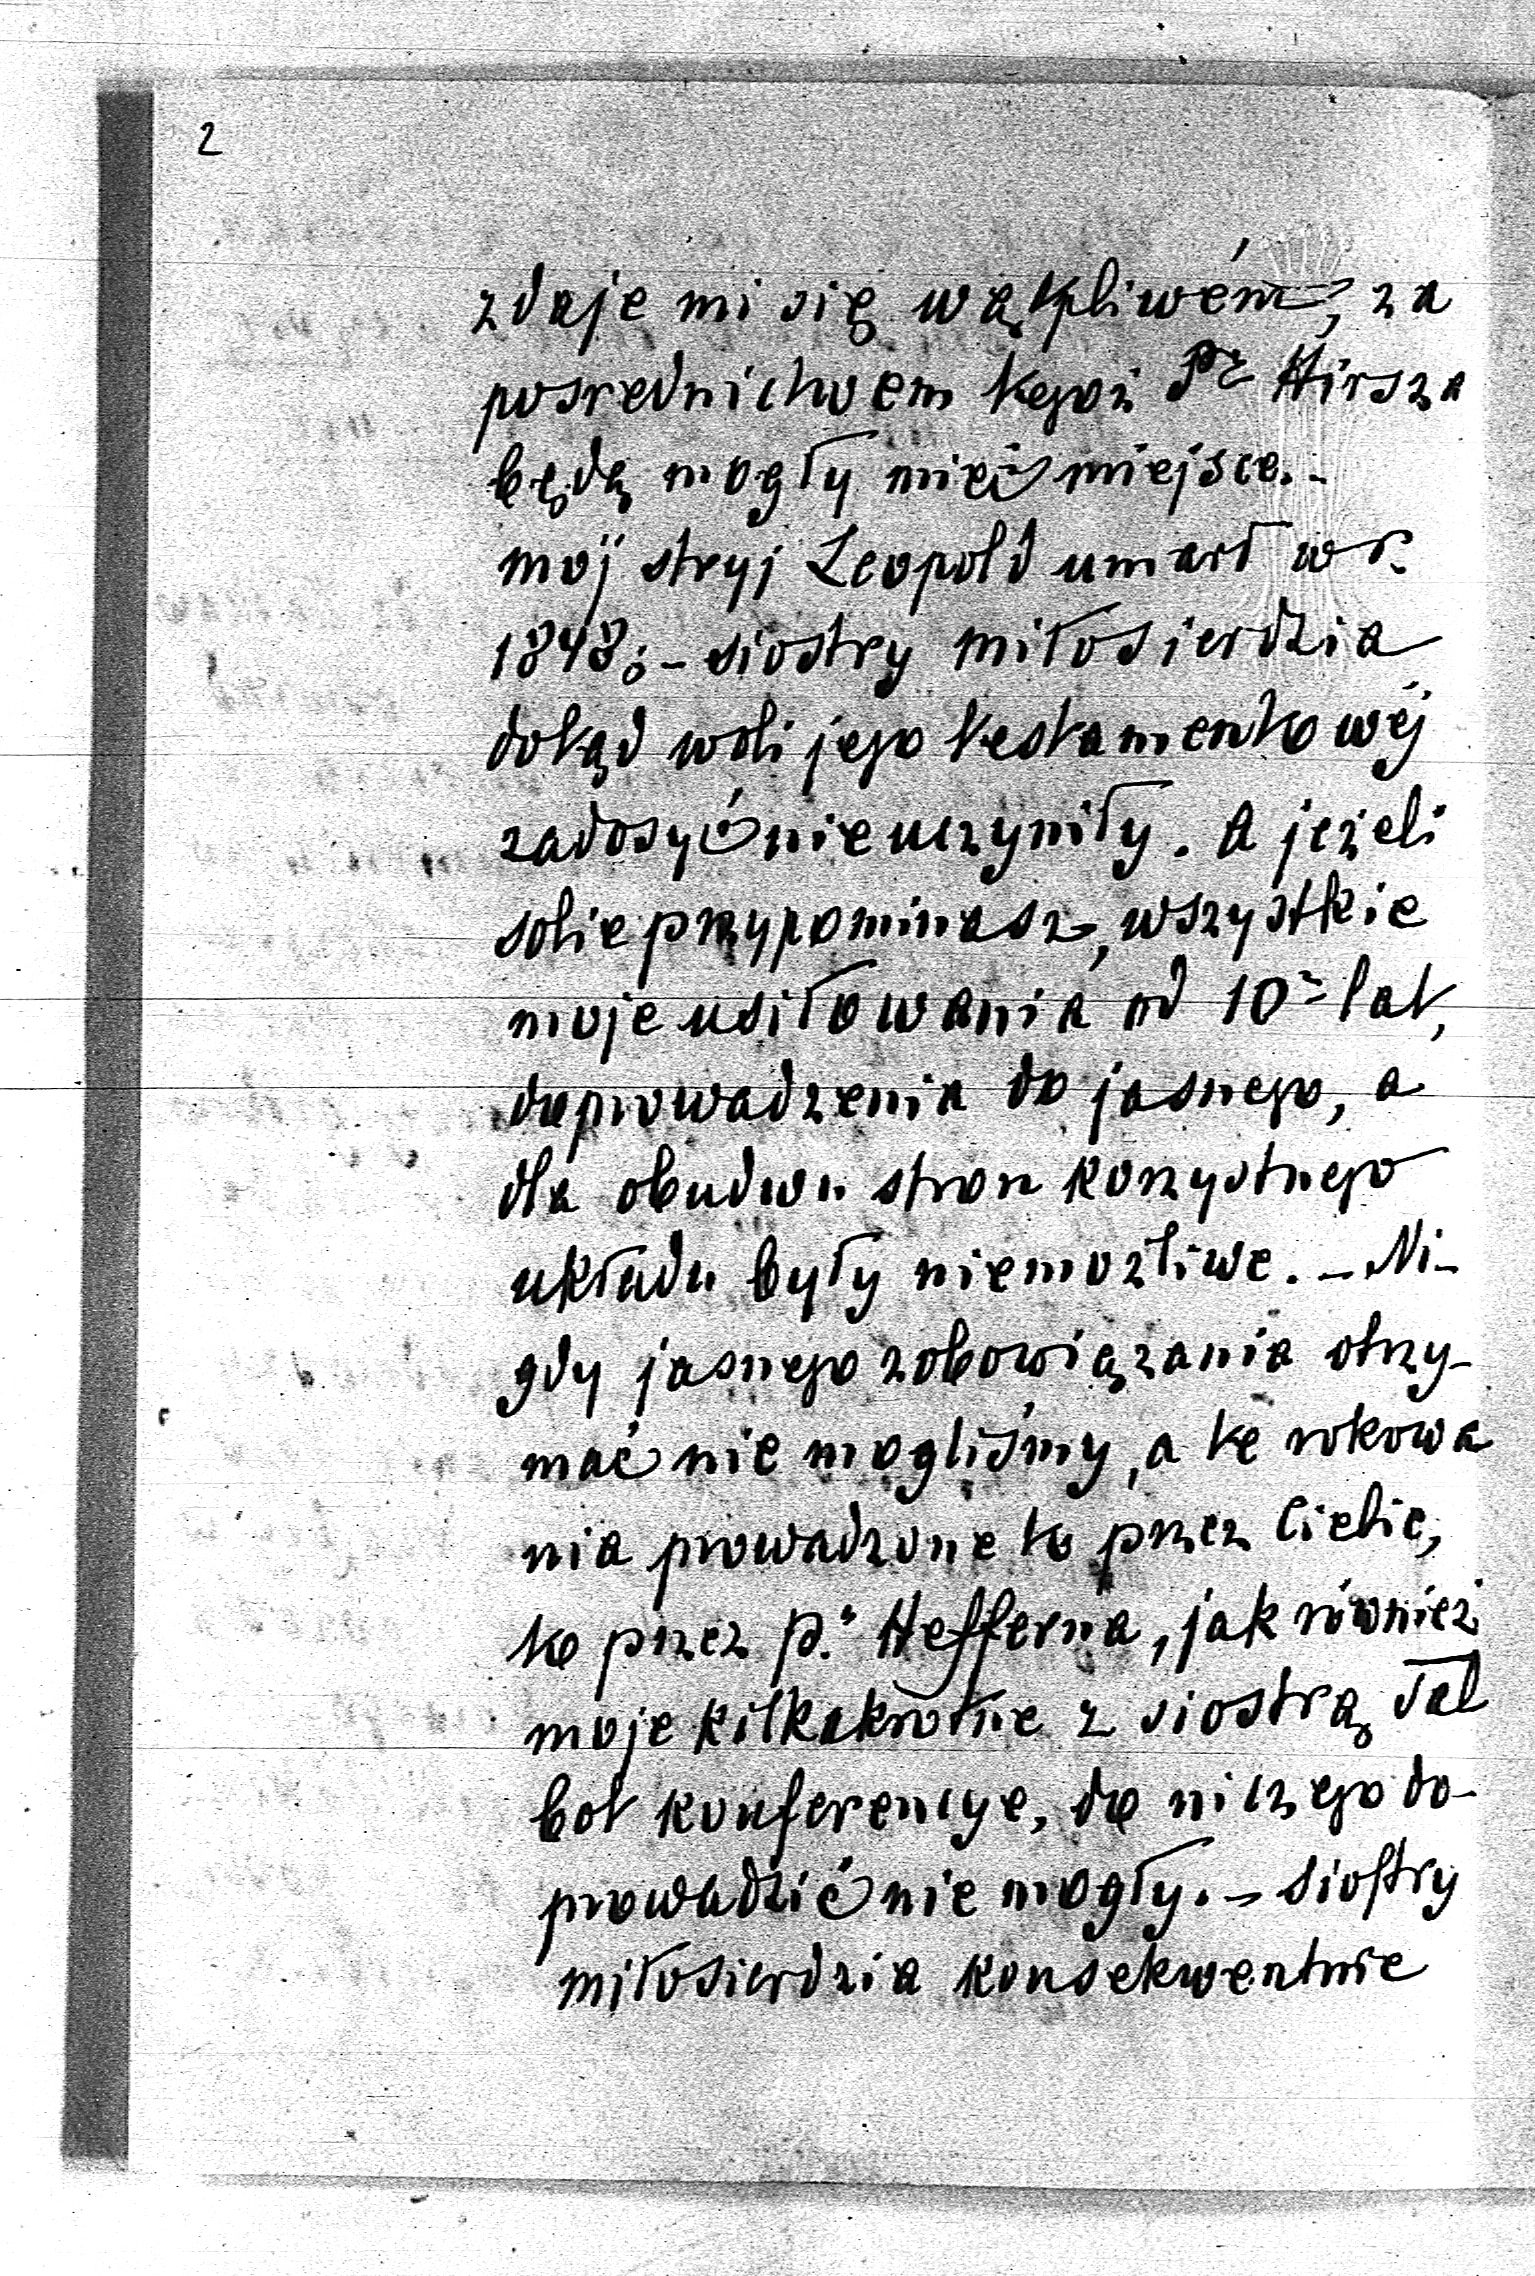 2
zdaje mi się wątpliwém, za
posrednictwem tegoż Pa Hirsza
będą mogły mieć miejsce. -
moj stryj Leopold umarł w r.
1848: - siostry miłosierdzia
dotąd woli jego testamentowéj
zadosyć nie uczyniły. A jeżeli
sobie przypominasz, wszystkie
moje usiłowania od 10 - lat,
doprowadzenia do jasnego, a
dla obudwu stron korzystnego
układu były niemożliwe. - Ni-
gdy jasnego zobowiązania otrzy-
mać nie mogliśmy, a te rokowa
nia prowadzone to przez Ciebie,
to przez p. Hefferna, jak również
moje kilkakrotne z siostrą Tal
bot konferencye, do niczego do-
prowadzić nie mogły. - Siostry
miłosierdzia konsekwentnie